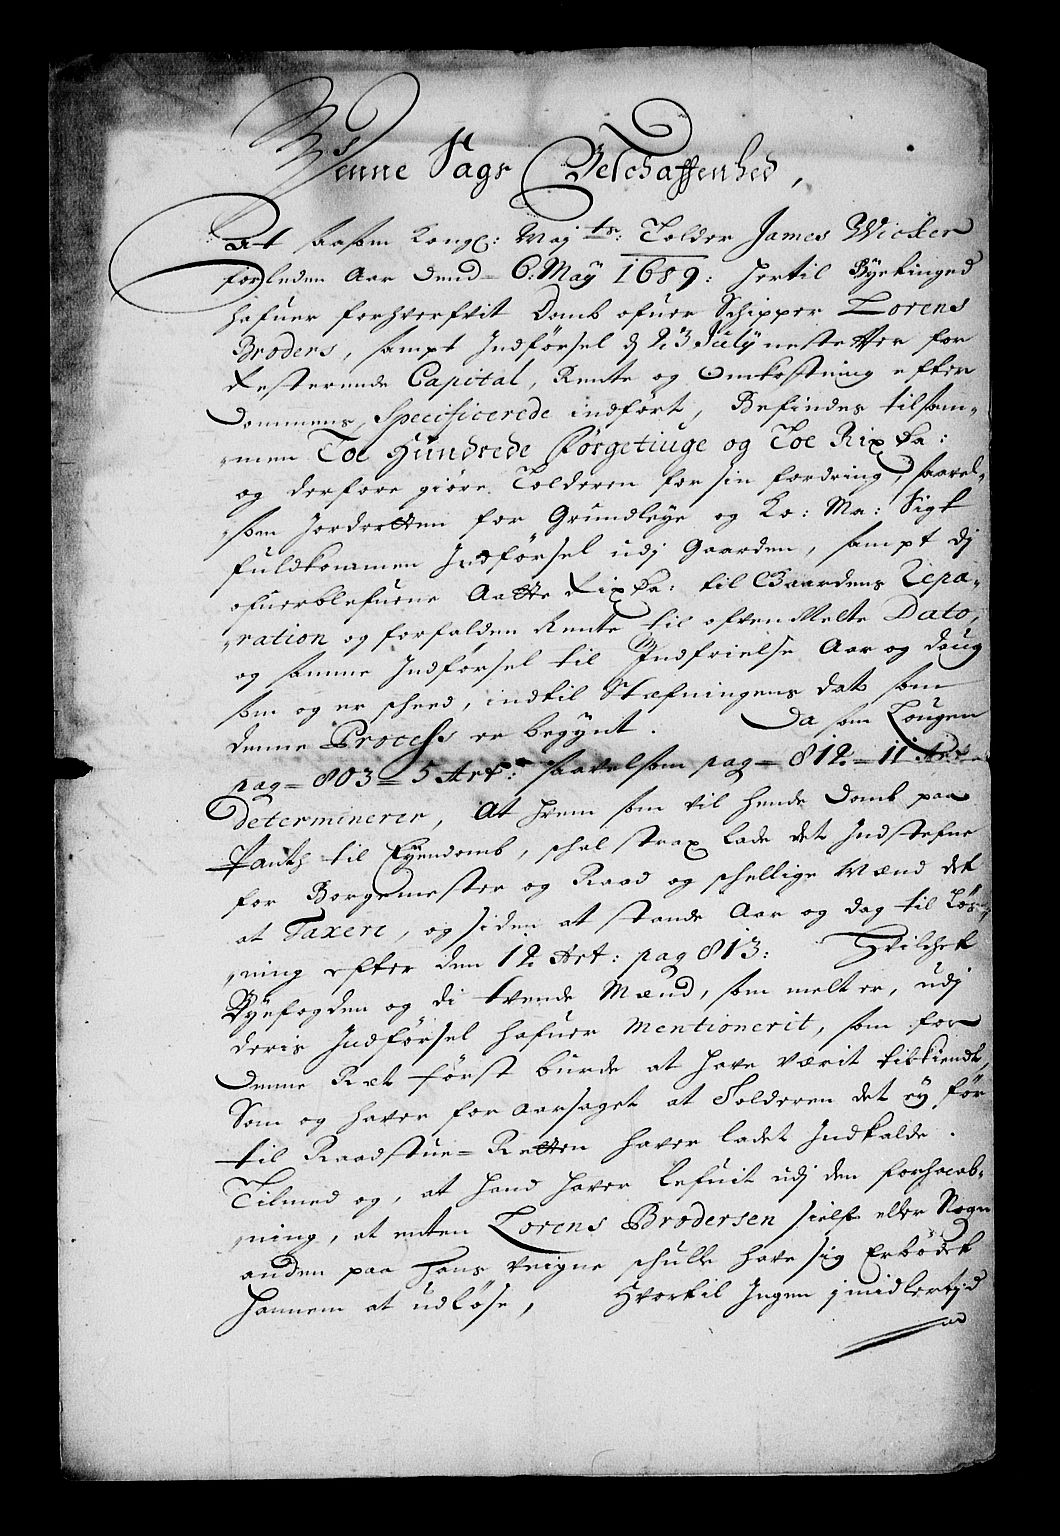 Denne Sags Beschaffenhed,
At saasom Kongl: May:ts: Tolder James Wicker
forleden Aar dend 6. May 1689: hertil Byetinged
hafuer forhverfvit Domb ofuer Schipper Lorens
Broders, sampt Indførsel d 23 July nest effter for
Resterende Capital, Rente og Omkostning efter
Dommens Specificerede indført, Befindes tilsam-
-men Toe Hundrede Førgetiuge og Toe Rixda:
og derfore giøre Tolderen for sin fordring, saavel-
-som Jordretten for Grundleye og Ko: Ma: Sigt
fuldkommen Indførsel udj Gaarden, sampt dj
ofuerblefuene Aatte Rixda: til Gaardens Repa-
-ration og forfalden Rente til ofvenmelte Dato,
og samme Indførsel til Indfrielse Aar og daug
som og er scheed, indtil Stæfningens dato som
denne Process er begynt. Da som Lougen
pag= 803= 5 Art: saavelsom pag= 812= 11 Art
determinerer, At hvem som vil hende Domb paa
Panth til Eyendomb, schal strax lade det Indstefne
for Borgemester og Raad og schellige Mænd det
at Taxere, og siden at stande Aar og dag til Løs-
-ning efter den 12 Art: pag 813: Hvilchet
Byefogden og di tvende Mænd, som melt er, udj
deris Indførsel hafuer mentionerit, som for
denne Ræt først burde at have værit tilkiendt,
Som og haver for aarsaget at Tolderen det ey før
til Raadstue=Retten haver ladet Indkalde.
Tilmed og, at hand haver lefuit udj den forhaab-
-ning, at enten Lorens Brodersen sielf eller Nogen
anden paa Hans veigne schulle have sig Erbødet
hannem at udløse, Hvortil Ingen jmidlertjd